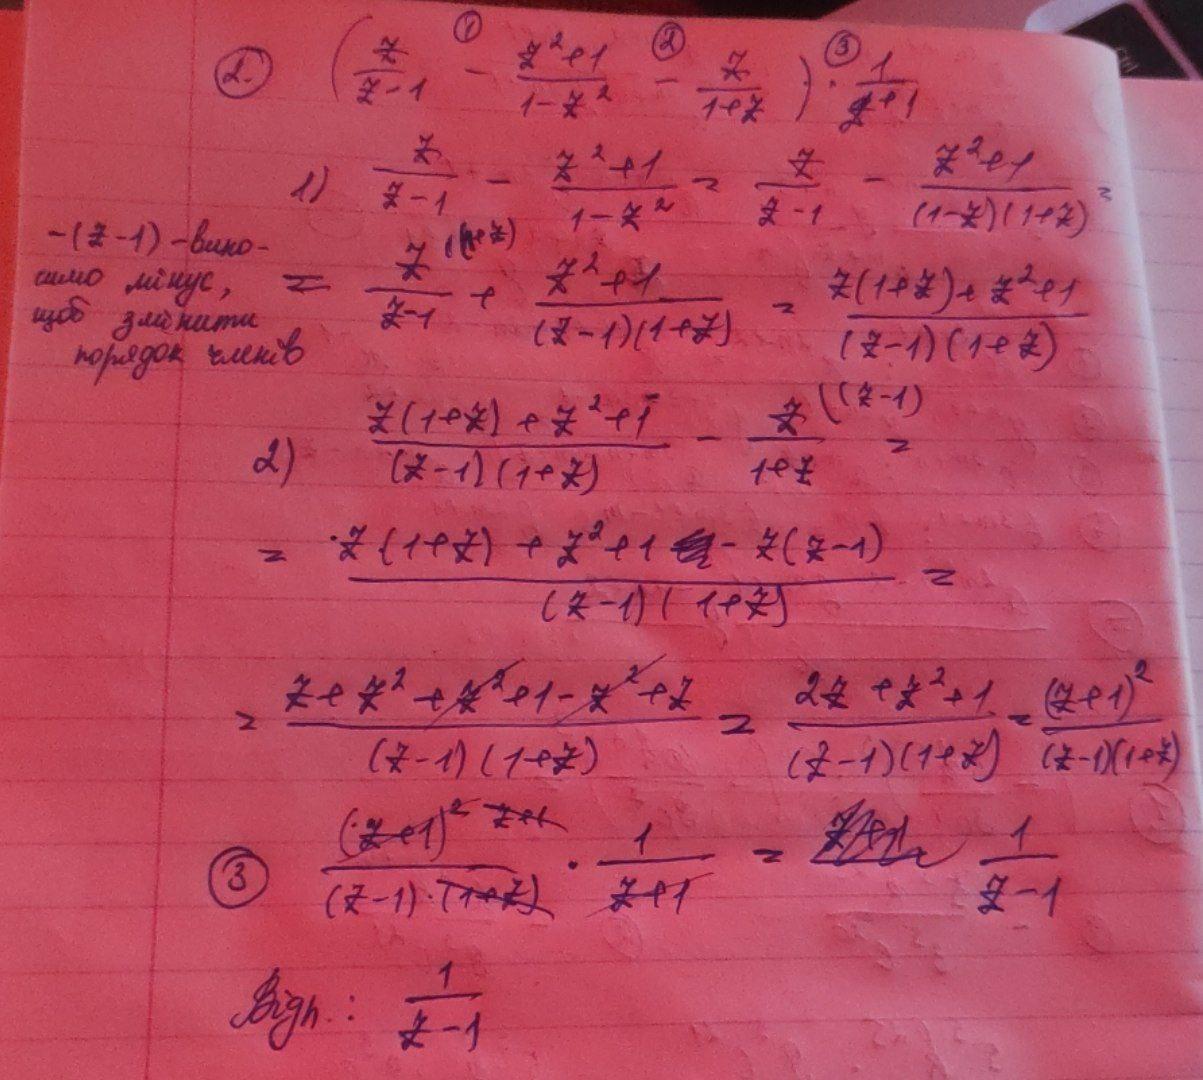 2. (z/(z-1) - (z²+1)/(1-z²) - z/(1+z)) · 1/(z+1)
① ② ③
1) z/(z-1) - (z²+1)/(1-z²) = z/(z-1) - (z²+1)/((1-z)(1+z)) =
-(z-1) - вино-
симо мінус,
щоб змінити
порядок членів
= z/(z-1) ((1+z) + (z²+1)/((z-1)(1+z)) = (z(1+z)+z²+1)/((z-1)(1+z))
2) (z(1+z)+z²+1)/((z-1)(1+z)) - z/(1+z) ((z-1) =
= (z(1+z)+z²+1 - z(z-1))/((z-1)(1+z)) =
= (z+z²+z²+1-z²+z)/((z-1)(1+z)) = (2z+z²+1)/((z-1)(1+z)) = (z+1)²/((z-1)(1+z))
③ (z+1)² z+1/((z-1)·(1+z)) · 1/(z+1) = 1/(z-1)
Відп.: 1/(z-1)